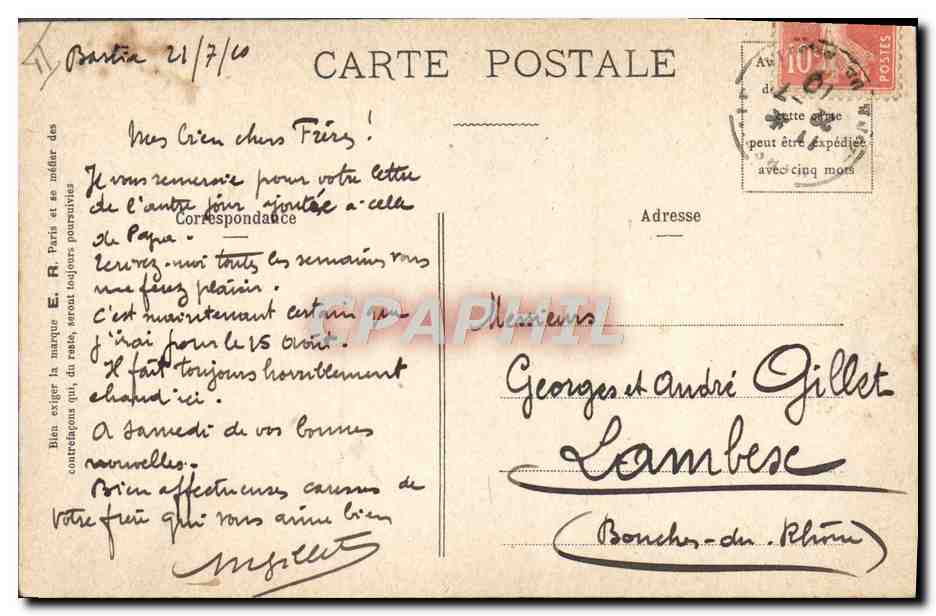 Bastia 21/7/10
CARTE POSTALE
Mes bien chers Frères !
Je vous remercie pour votre lettre
de l'autre jour ajoutée à celle
de Papa.
Ecrivez-moi toutes les semaines vous
me ferez plaisir.
C'est maintenant certain que
j'irai pour le 15 août.
Il fait toujours horriblement
chaud ici.
A samedi de vos bonnes
nouvelles.
Bien affectueuses caresses de
votre frère qui vous aime bien
MGillet
Correspondance
Adresse
Messieurs
Georges et André Gillet
Lambesc
(Bouches-du-Rhône)
10 POSTES
cette carte
peut être expédiée
avec cinq mots
Bien exiger la marque E. R. Paris et se méfier des
contrefaçons qui, du reste, seront toujours poursuivies
CPAPHIL